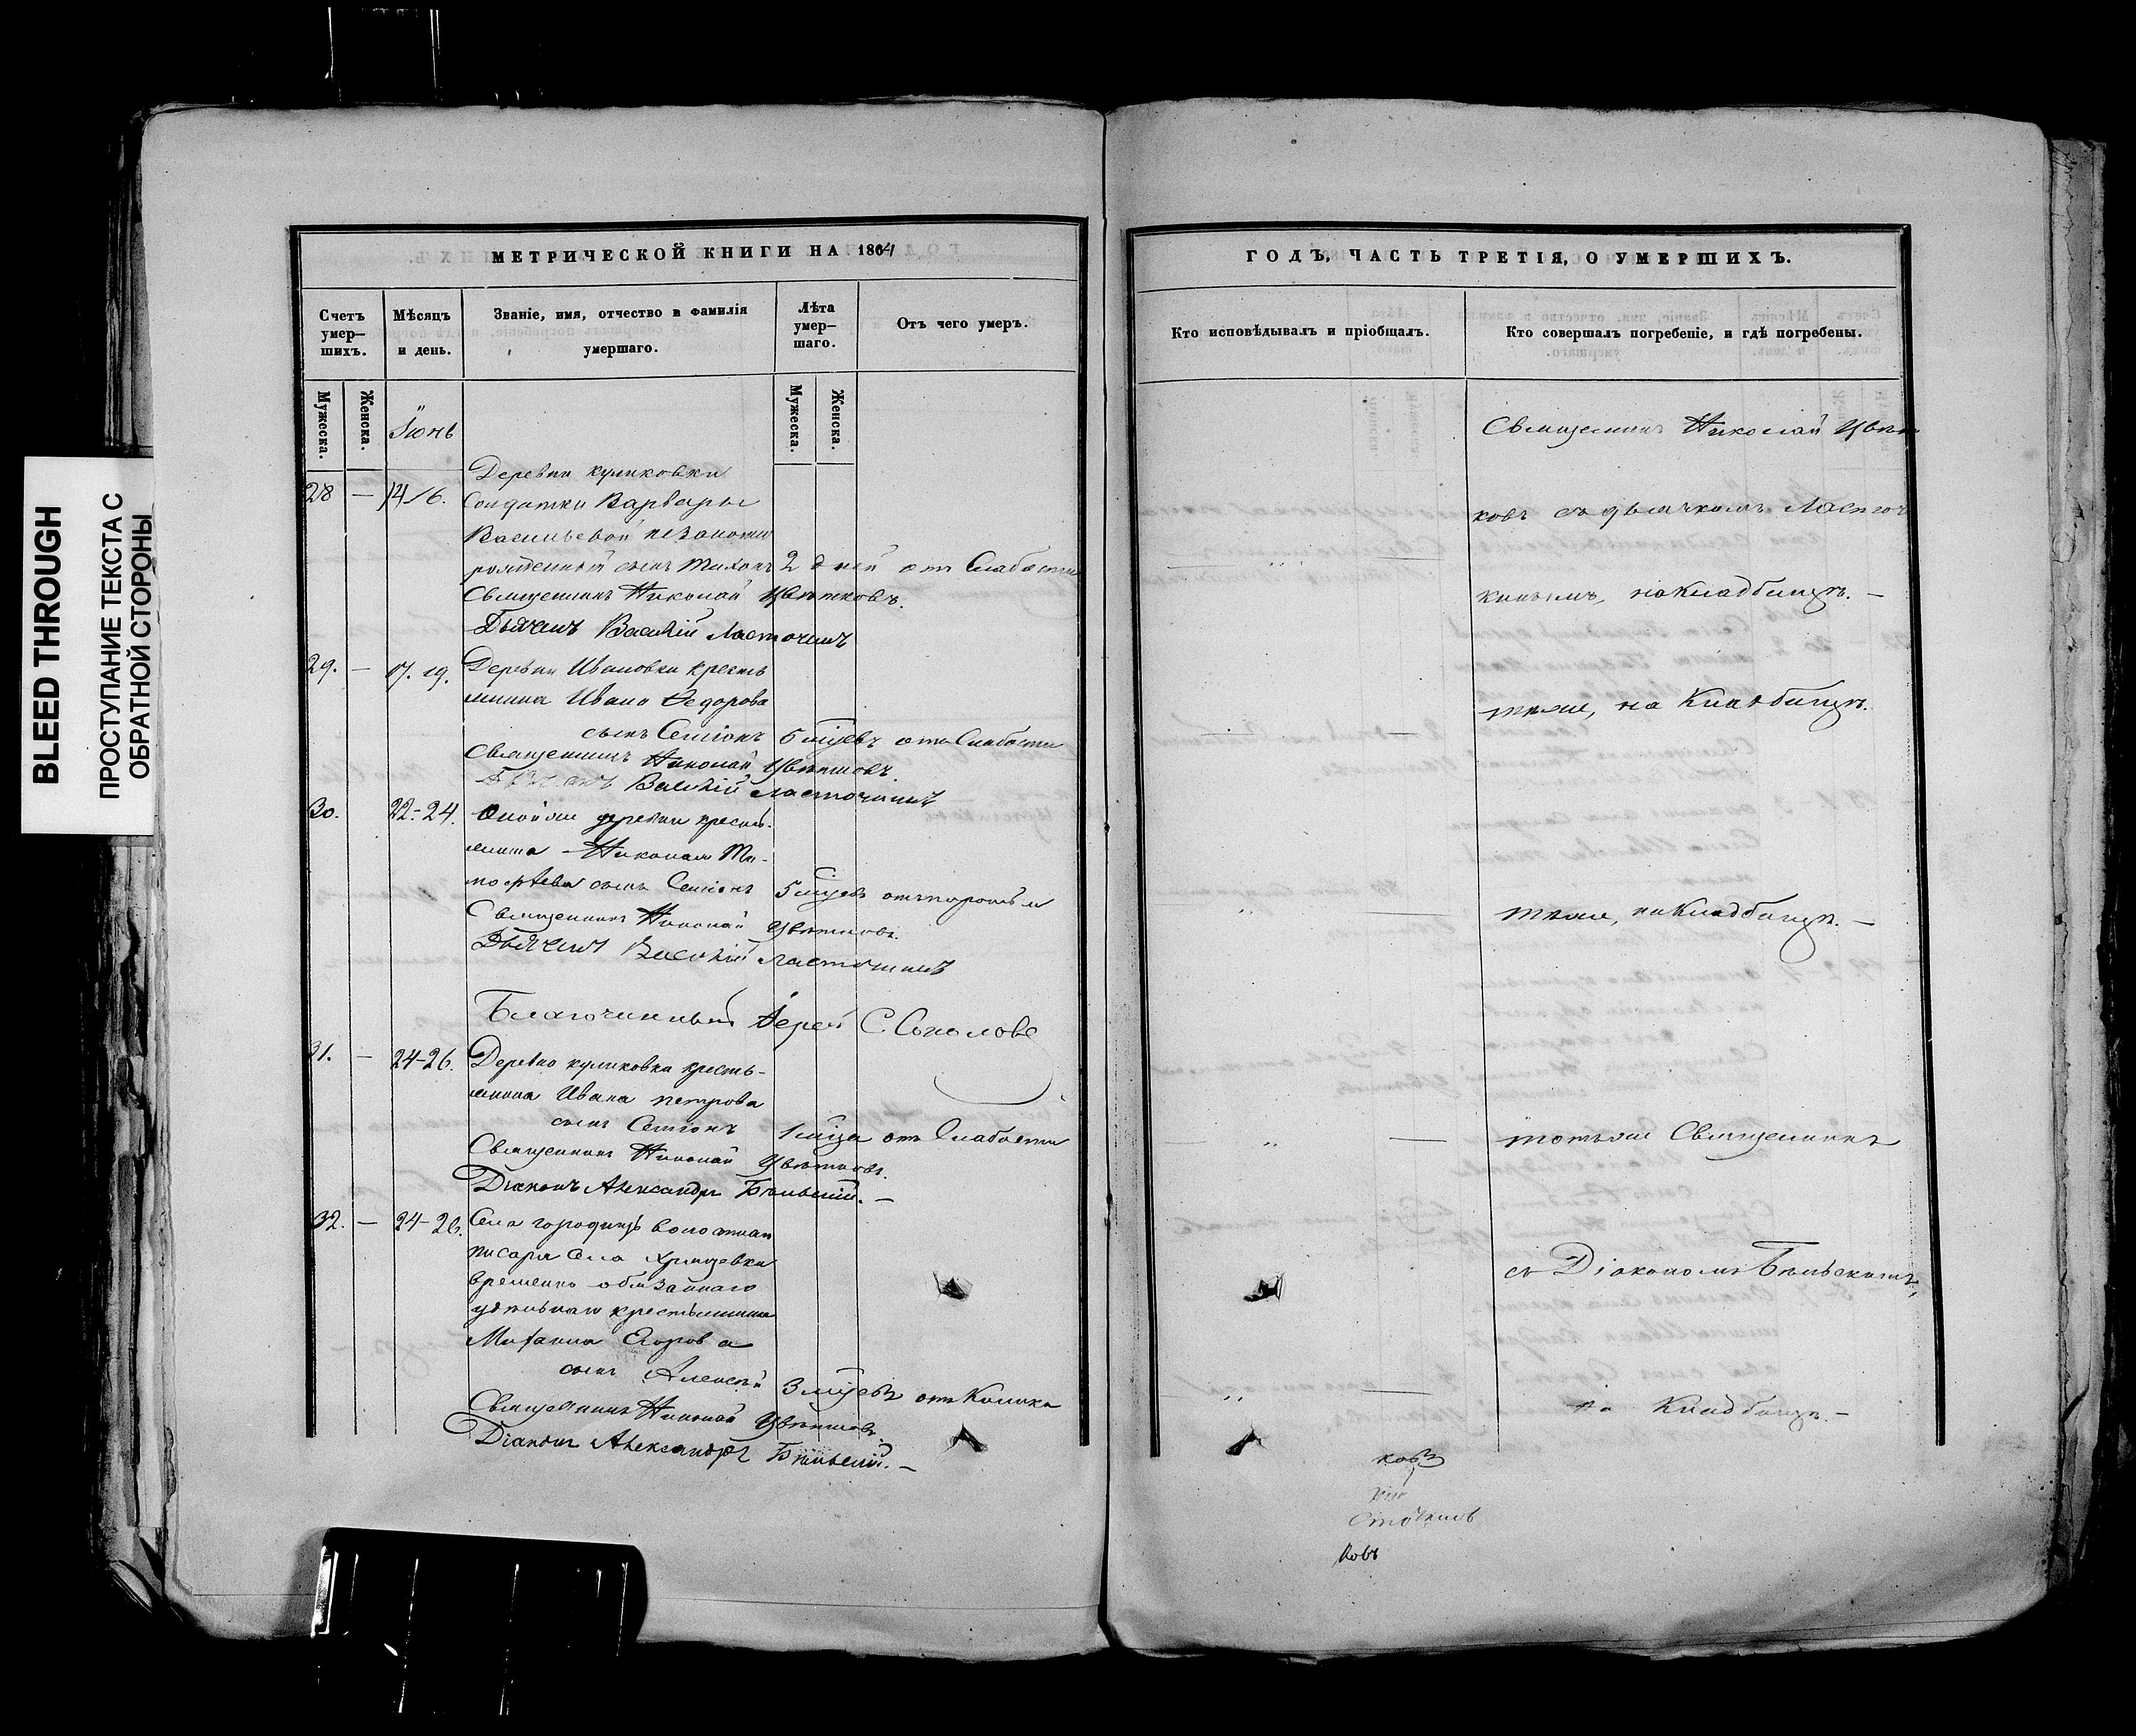 BLEED THROUGH
ПРОСТУПАНИЕ ТЕКСТА С
ОБРАТНОЙ СТОРОНЫ
МЕТРИЧЕСКОЙ КНИГИ НА 1864
Счетъ умер-шихъ.
Мѣсяцъ и день.
Званіе, имя, отчество и фамилія умершаго.
Лѣта умер-шаго.
Отъ чего умеръ.
Мужеска.
Женска.
Іюнь
Мужеска.
Женска.
Деревни куликовки
28 — 14 16. Солдатки Варвары
Васильевой незаконно
рожденный сынъ Тихонъ 2 дней отъ Слабости
Священникъ Николай Цвѣтковъ.
Дьячекъ Василій Ласточкинъ
29. — 17. 19. Деревни Ивановки кресть
янина Ивана Ѳедорова
сынъ Семіонъ 6 мцевъ отъ Слабости
Священникъ Николай Цвѣтковъ.
Дьячекъ Василій Ласточкинъ
30. 22-24. Оной же деревни кресть-
янина Николая Ти-
моѳѣева сынъ Семіонъ 5 мцевъ
Священникъ Николай Цвѣтковъ.
Дьячекъ Василій Ласточкинъ
Благочинный Іерей С. Соколовъ
31. — 24-26. Деревни куликовки кресть-
янина Ивана петрова
сынъ Семіонъ 1 мца отъ Слабости
Священникъ Николай Цвѣтковъ.
Діаконъ Александръ Бѣльскій. —
32. — 24-26. Села городищъ волостнаго
писаря села
временно обязаннаго
крестьянина
Михаила Егорова
сынъ Алексѣй 3 мцевъ отъ Колика
Священникъ Николай Цвѣтковъ.
Діаконъ Александръ Бѣльскій. —
ГОДЪ, ЧАСТЬ ТРЕТІЯ, О УМЕРШИХЪ.
Кто исповѣдывалъ и пріобщалъ.
Кто совершалъ погребеніе, и гдѣ погребены.
Священникъ Николай Цвѣт
ковъ съ дьячкомъ Ласточ
кинымъ, на Кладбищѣ. —
тѣже, на Кладбищѣ.
тѣже, на Кладбищѣ. —
тотъ же Священникъ
съ Діакономъ Бѣльскимъ,
на Кладбищѣ. —
ковъ
сточкинъ
ковъ